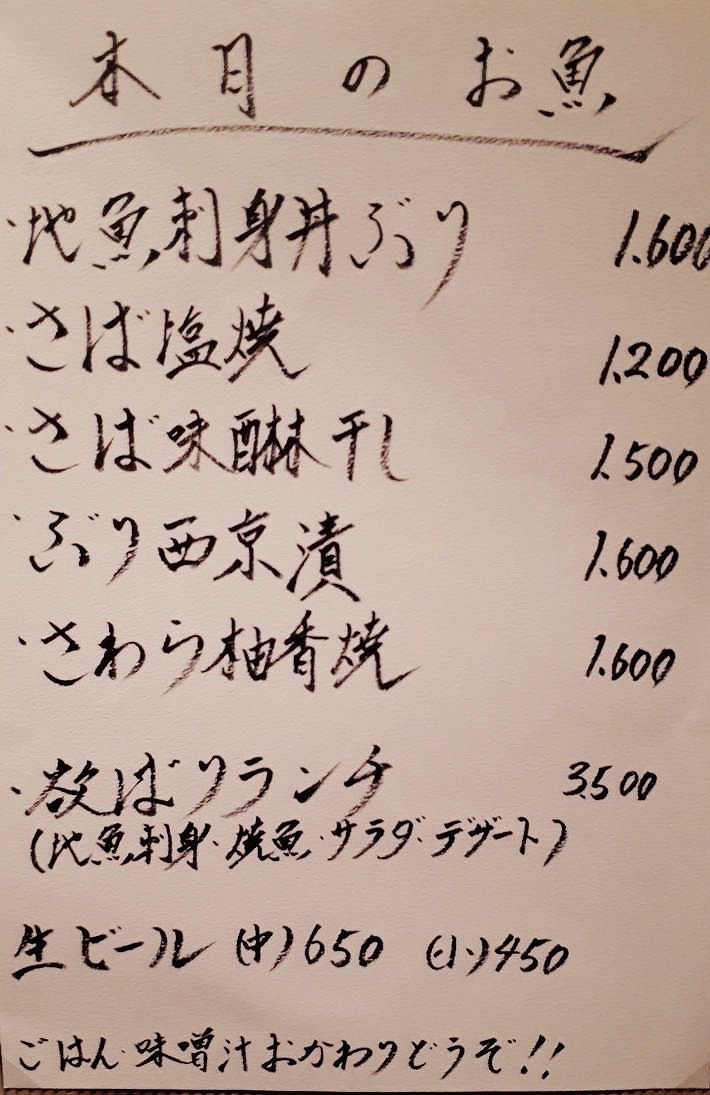 本日のお魚
・地魚刺身丼ぶり 1.600
・さば塩焼 1.200
・さば味醂干し 1.500
・ぶり西京漬 1.600
・さわら柚香焼 1.600
・欲ばりランチ 3.500
(地魚刺身・焼魚・サラダ・デザート)
生ビール (中)650 (小)450
ごはん・味噌汁おかわりどうぞ!!